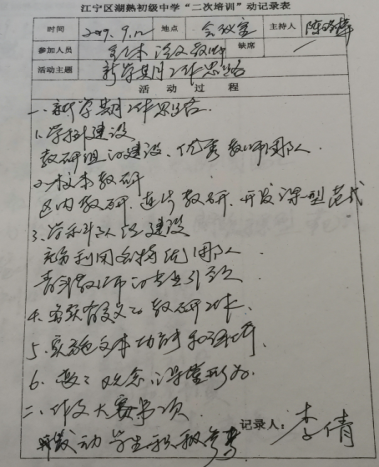 江宁区湖熟初级中学“二次培训”动记录表
时间 2019.9.12 地点 会议室 主持人
参加人员 全体语文教师 缺席
活动主题 新学期工作思路
活动过程
一、新学期工作思路
1.学科建设
教研组的建设、优秀教师团队
2.校本教研
区内教研、连片教研、开发课型范式
3.学科队伍建设
充分利用名特优团队
青年教师的专业引领
4.实效有意义的教研工作
5.实施文本功能和
6.教学观念
二、作文大赛事项
发动学生积极参与
记录人：李倩